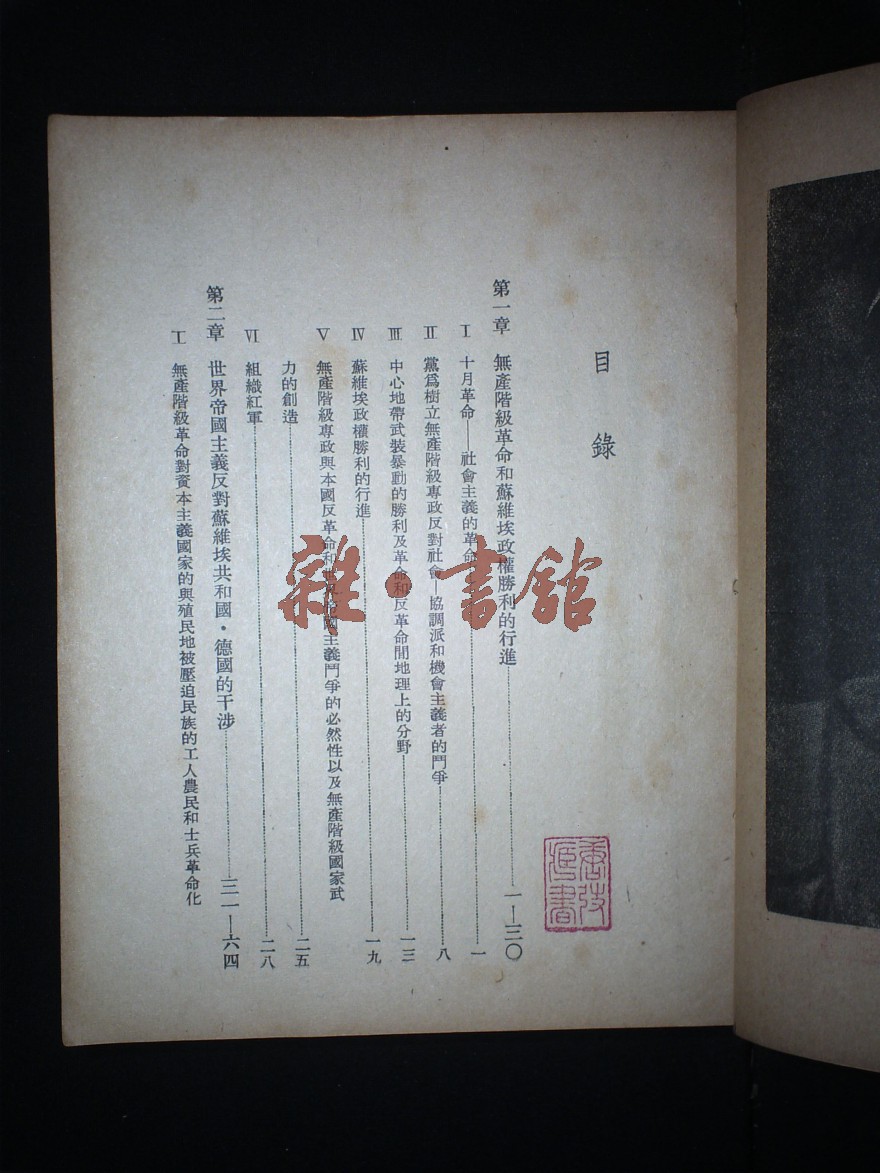 目錄
第一章 無產階級革命和蘇維埃政權勝利的行進……一—三〇
I 十月革命——社會主義的革命……一
II 黨爲樹立無產階級專政反對社會—協調派和機會主義者的鬥爭……八
III 中心地帶武裝暴動的勝利及革命和反革命間地理上的分野……一三
IV 蘇維埃政權勝利的行進……一九
V 無產階級專政與本國反革命和世界帝國主義鬥爭的必然性以及無產階級國家武
力的創造……二五
VI 組織紅軍……二八
第二章 世界帝國主義反對蘇維埃共和國·德國的干涉……三一—六四
I 無產階級革命對資本主義國家的與殖民地被壓迫民族的工人農民和士兵革命化
雜·書館